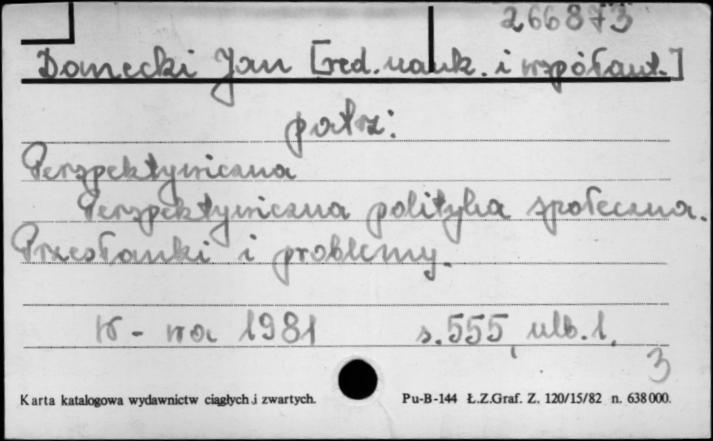 266873
Danecki Jan [red. nauk. i współaut.]
patrz:
Perspektywiczna
Perspektywiczna polityka społeczna.
Przesłanki i problemy.
W-wa 1981 s. 555, ulb. 1.
3
Karta katalogowa wydawnictw ciągłych i zwartych. Pu-B-144 Ł.Z.Graf. Z. 120/15/82 n. 638000.